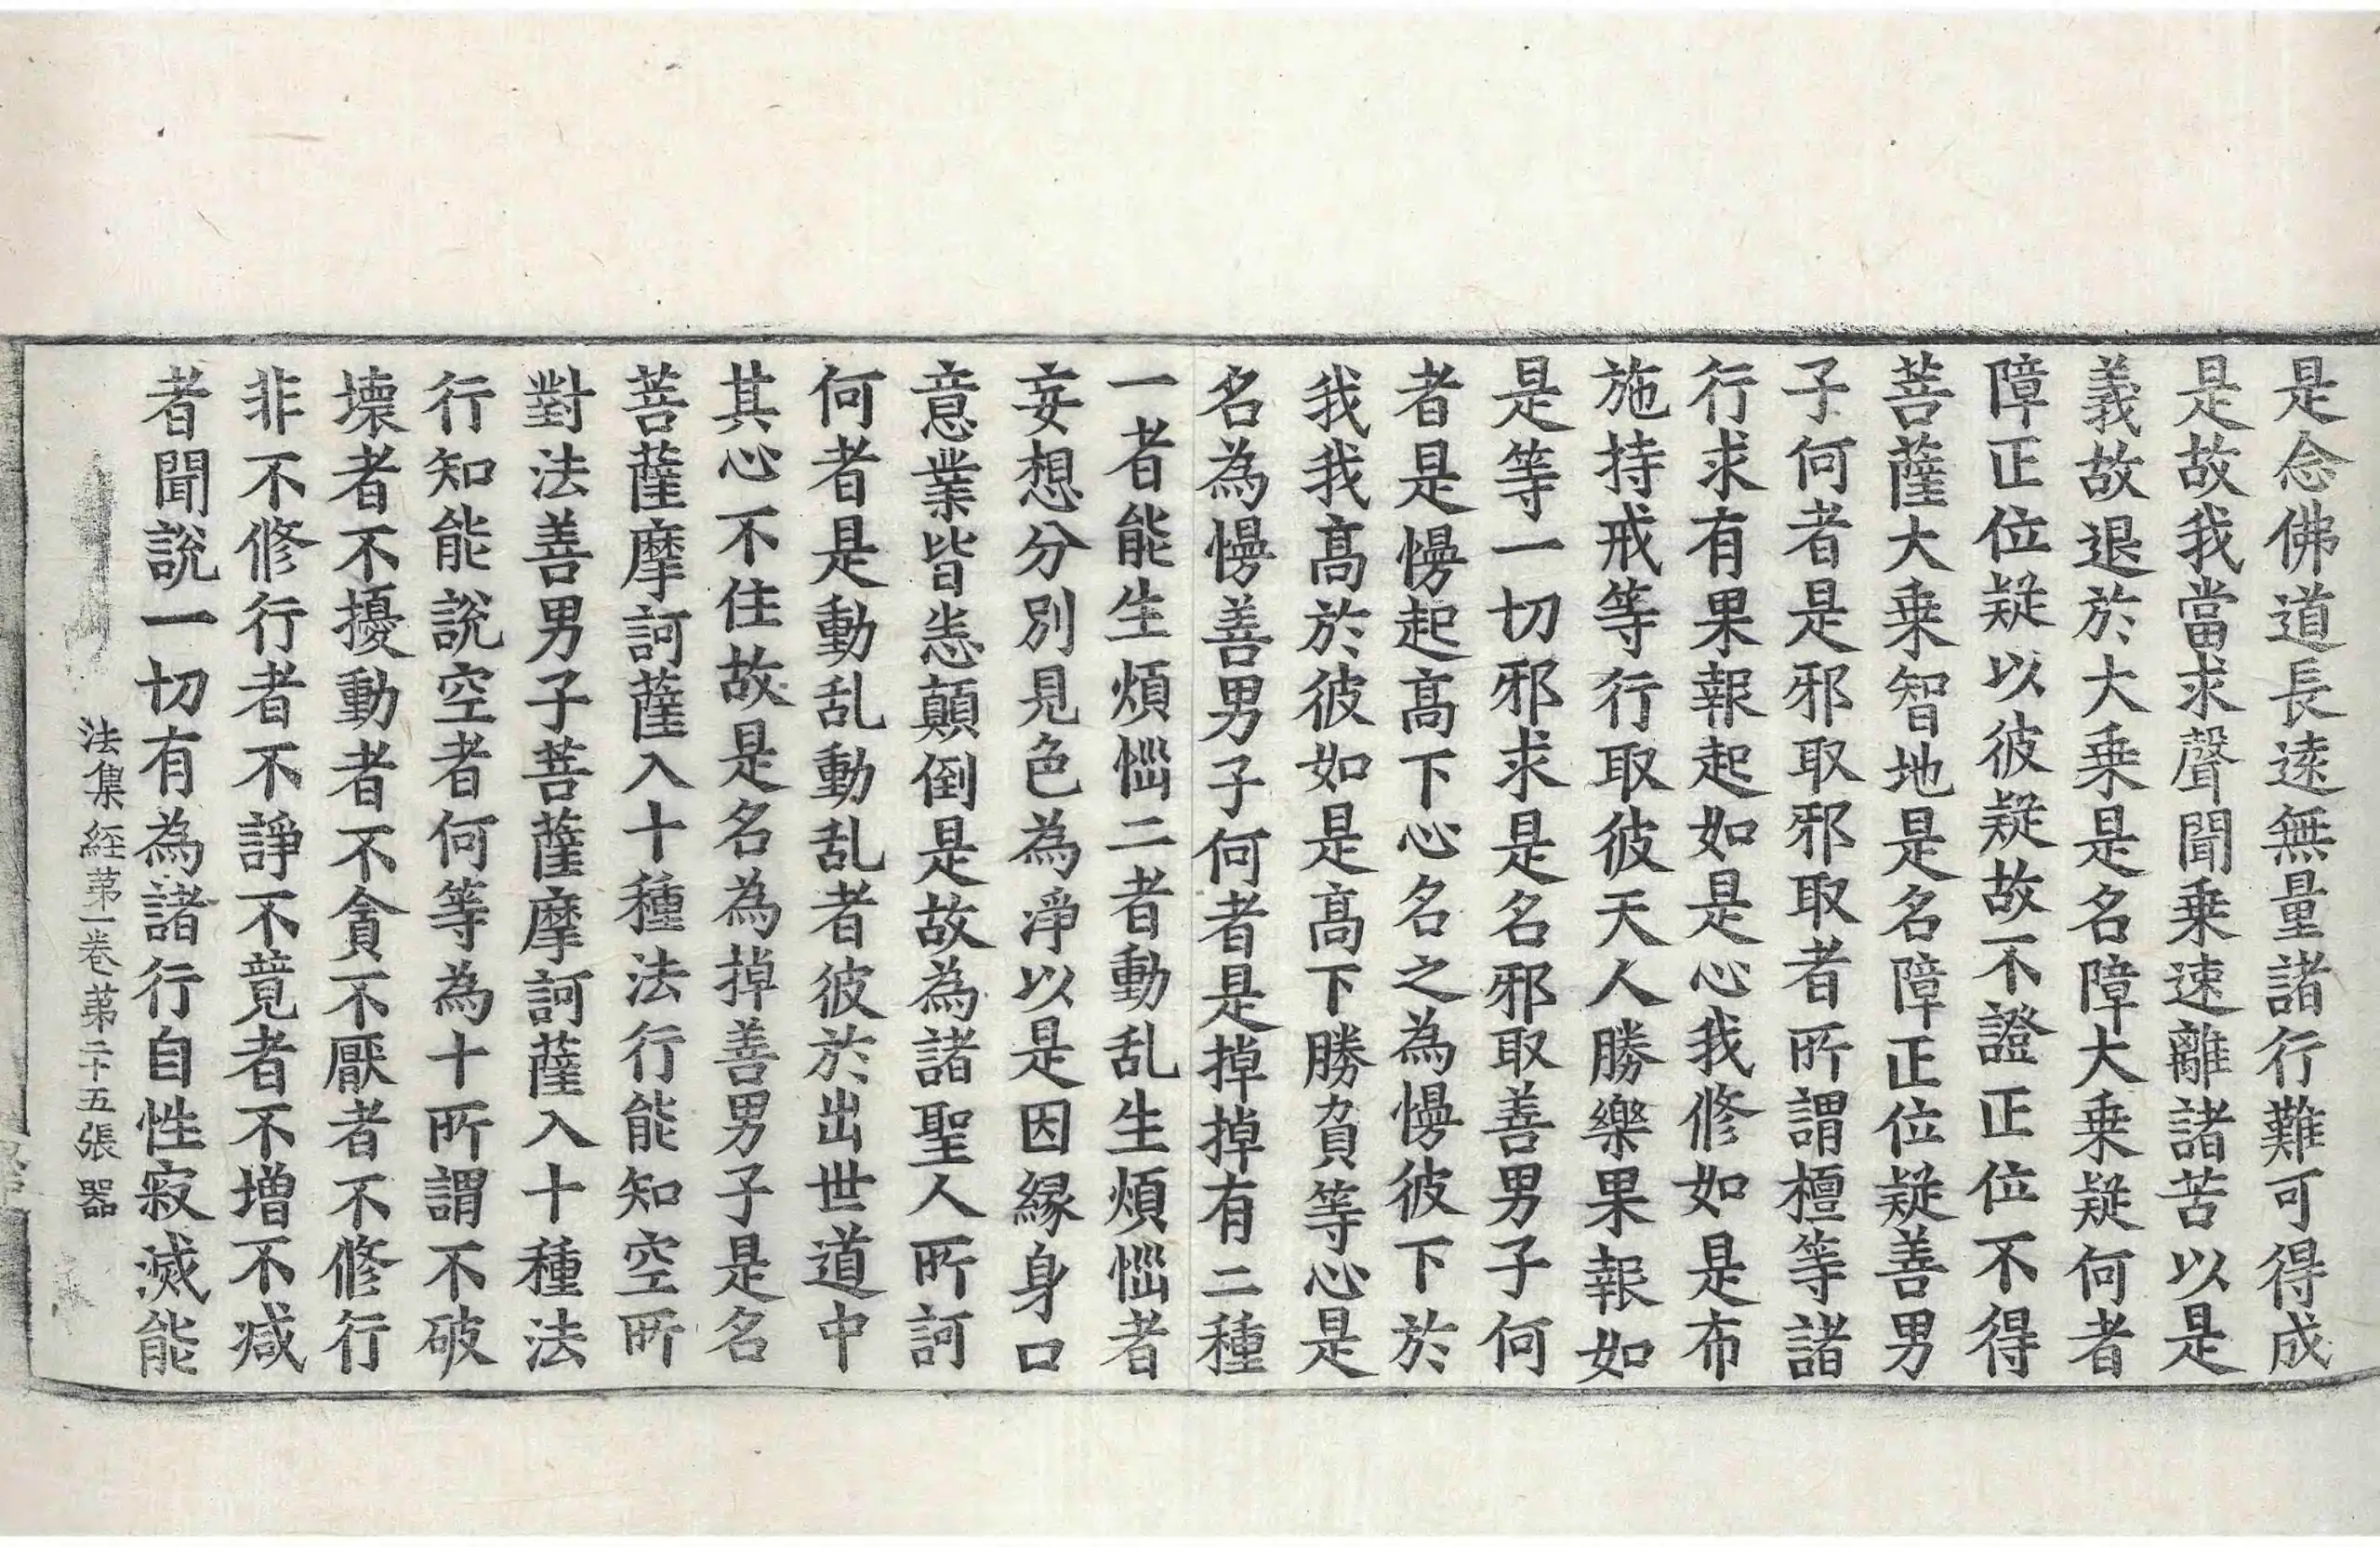 是念佛道長遠無量諸行難可得成
是故我當求聲聞乗速離諸苦以是
義故退於大乗是名障大乗疑何者
障正位疑以彼疑故不證正位不得
菩薩大乗智地是名障正位疑善男
子何者是邪取邪取者所謂檀等諸
行求有果報起如是心我修如是布
施持戒等行取彼天人勝樂果報如
是等一切邪求是名邪取善男子何
者是慢起髙下心名之為慢彼下於
我我髙於彼如是髙下勝負等心是
名為慢善男子何者是掉掉有二種
一者能生煩惱二者動乱生煩惱者
妄想分別見色為淨以是因縁身口
意業皆恙顛倒是故為諸聖人所訶
何者是動乱動乱者彼於出世道中
其心不住故是名為掉善男子是名
菩薩摩訶薩入十種法行能知空所
對法善男子菩薩摩訶薩入十種法
行知能說空者何等為十所謂不破
壊者不擾動者不貪不厭者不修行
非不修行者不諍不競者不增不减
者聞說一切有為諸行自性寂滅能
法集経苐一卷苐二十五張 器